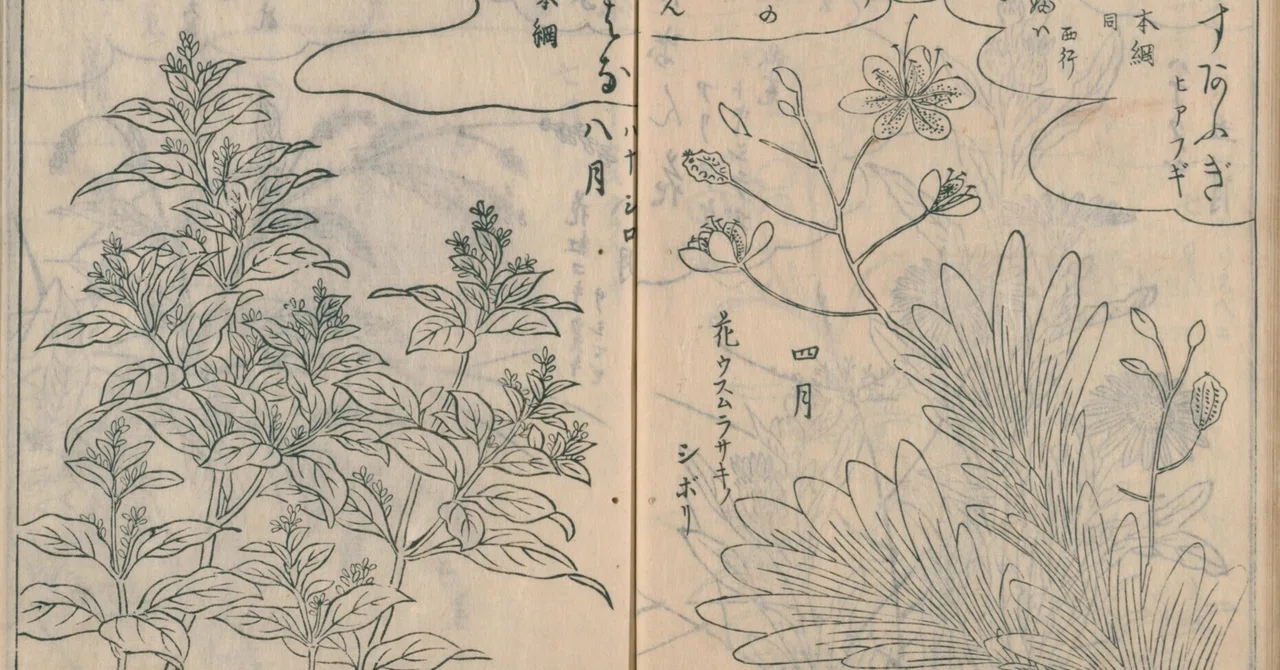 すあふぎ
ヒアフギ
本綱
同
西行
の
ん
四月
花ウスムラサキノ
シボリ
ハナシロ
八月
本綱